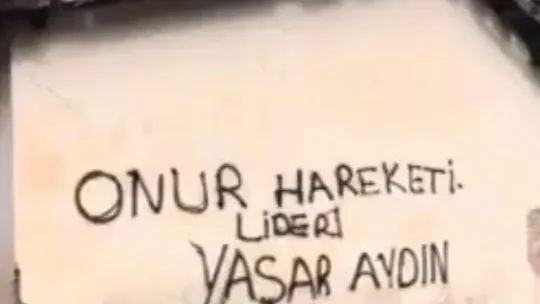 ONUR HAREKETİ.
LİDERİ
YASAR AYDIN